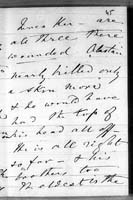 45
are
all three there
wounded
nearly killed only
a skin more
& he would have
had the top of
his head all off
He is all right
so far - & his
brothers too
is the